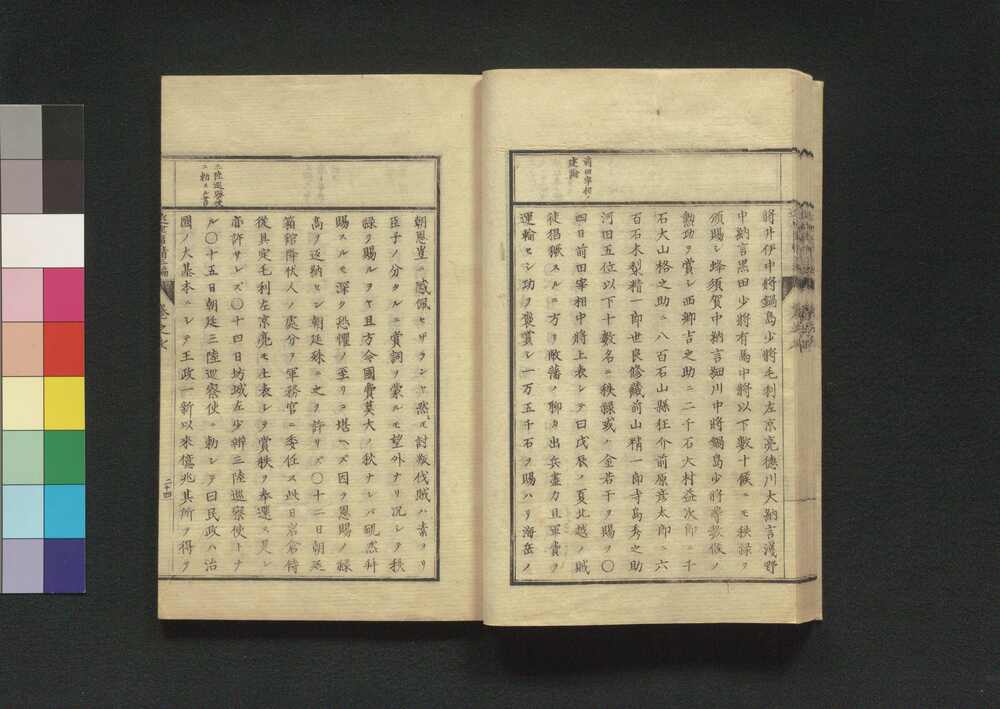 前田宰相ノ
建論
將井伊中將鍋島少將毛利左京亮德川大納言淺野
中納言黑田少將有馬中將以下數十候ニモ秩祿ヲ
頒賜シ蜂須賀中納言細川中將鍋島少將等數候ノ
勲功ヲ賞シ西鄉吉之助ニ二千石大村益次郎ニ千
石大山格之助ニ八百石山縣狂介前原彥太郎ニ六
百石木梨精一郎世良修藏前山精一郎寺島秀之助
河田五位以下十數名ニ秩祿或ハ金若干ヲ賜フ〇
四日前田宰相中將上表シテ曰戊辰ノ夏北越ノ賊
徒猖獗スルニ方リ敝藩ノ聊カ出兵盡力且軍費ヲ
運輸セシ功ヲ褒賞シ一万五千石ヲ賜ハリ海岳ノ
朝恩豈ニ感佩セザランヤ然ㇾ𪜈討叛伐賊ハ素ヨリ
臣子ノ分タルニ賞詞ヲ蒙ルモ望外ナリ況シテ秩
祿ヲ賜ルヲヤ且方今國費莫大ノ秋ナレバ靦然拜
賜スルモ深ク恐懼ノ至リニ堪ヘズ因ヲ恩賜ノ祿
高ヲ返納セン朝廷殊ニ之ヲ許リズ〇十二日朝廷
箱館降伏人ノ處分ヲ軍務官ニ委任ス此日岩倉侍
從具定毛利左京亮モ上表シテ賞秩ヲ奉還ス
亦許サレズ〇十四日坊城左少辨三陸巡察使トナ
ル〇十五日朝廷三陸巡察使ニ勅シテ曰民政ハ治
國ノ大基本ニシテ王政一新以來億兆其所ヲ得ヲ
三陸巡察使
ニ勅ス
卷之
二十四